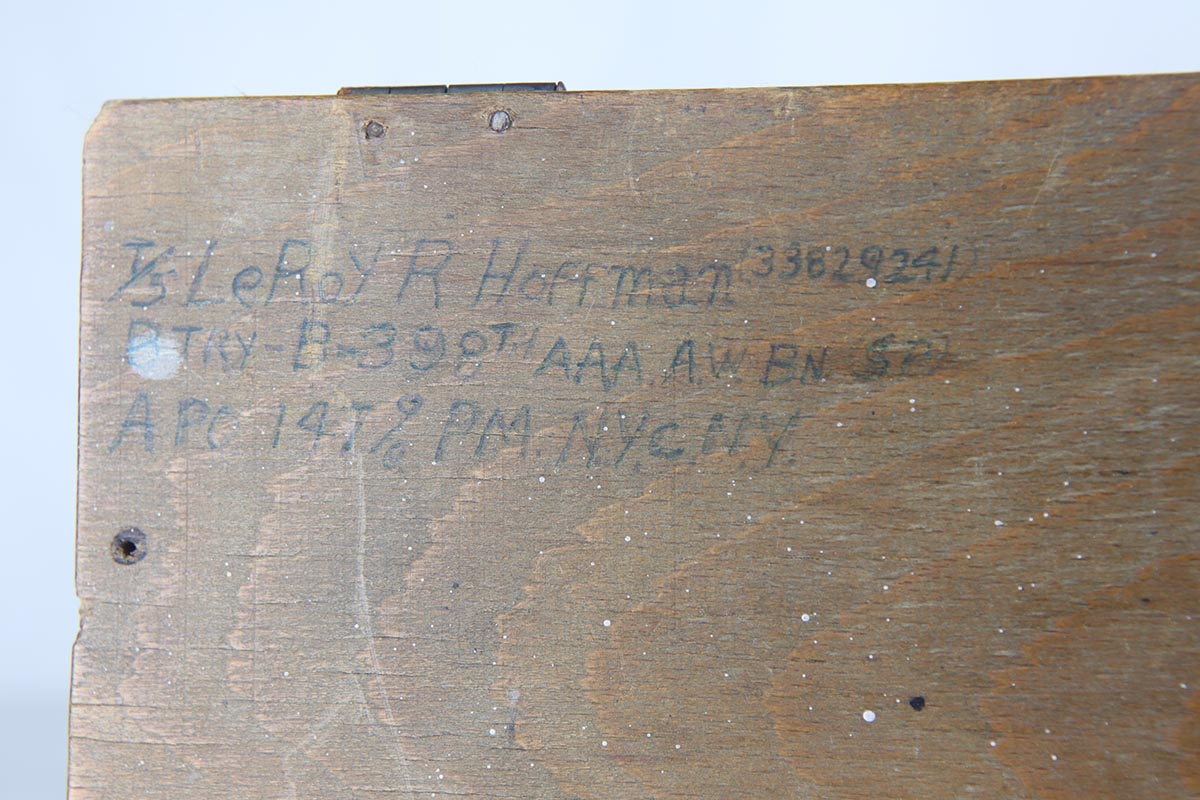 T/5 LeRoy R Hoffman (33829241)
BTRY-B-398TH AAA. A.W. BN. SP)
APO 147 c/o P.M. N.Y.C. N.Y.